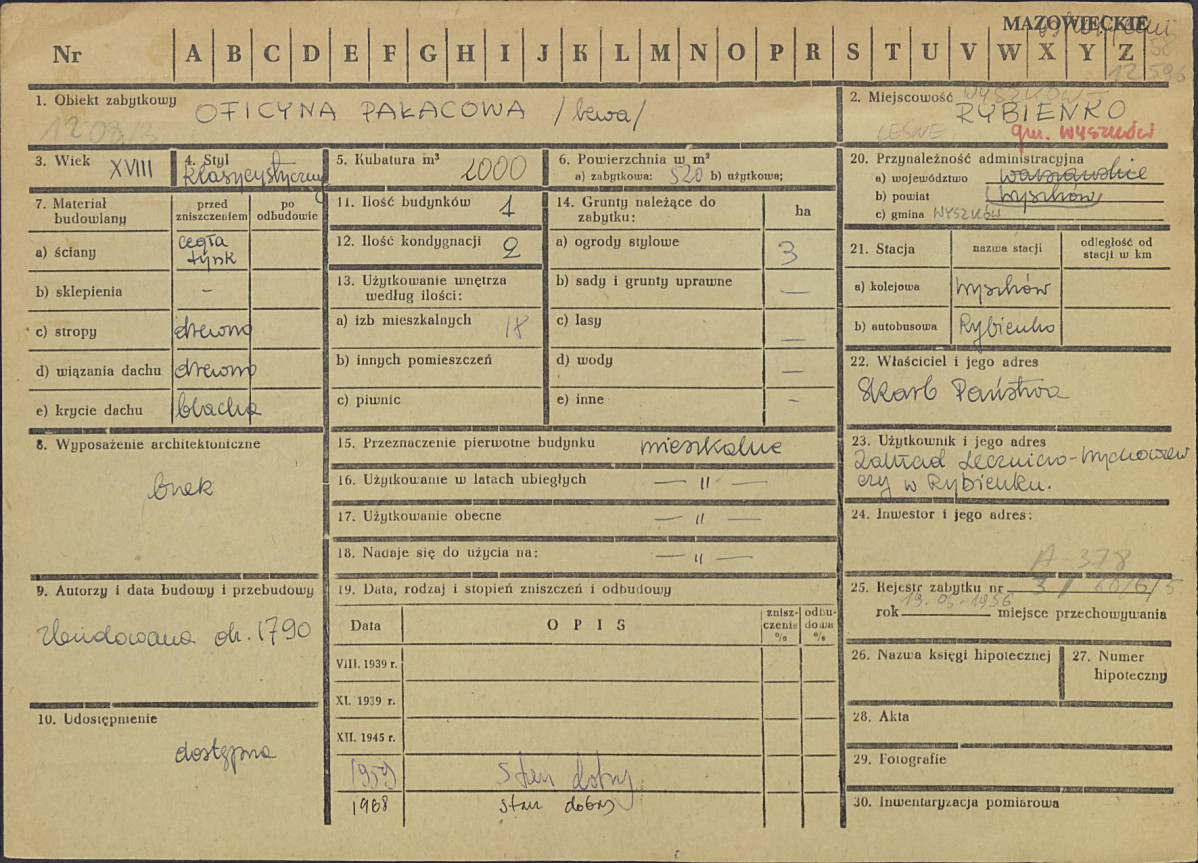 MAZOWIECKIE
Nr A B C D E F G H I J K L M N O P R S T U V W X Y Z
12 596
1. Obiekt zabytkowy OFICYNA PAŁACOWA /lewa/
2. Miejscowość WYSZKÓW -
RYBIENKO
LEŚNE gm. WYSZKÓW
3. Wiek XVIII
4. Styl klasycystyczny
5. Kubatura m³ 2000
6. Powierzchnia w m²
a) zabytkowa: 520 b) użytkowa;
7. Materiał budowlany
przed zniszczeniem
po odbudowie
a) ściany cegła tynk
b) sklepienia –
c) stropy drewno
d) wiązania dachu drewno
e) krycie dachu blacha
8. Wyposażenie architektoniczne
brak
9. Autorzy i data budowy i przebudowy
Zbudowana ok. 1790
10. Udostępnienie
dostępna
11. Ilość budynków 1
12. Ilość kondygnacji 2
13. Użytkowanie wnętrza
według ilości:
a) izb mieszkalnych 18
b) innych pomieszczeń
c) piwnic
14. Grunty należące do
zabytku: ha
a) ogrody stylowe 3
b) sady i grunty uprawne —
c) lasy —
d) wody —
e) inne –
15. Przeznaczenie pierwotne budynku mieszkalne
16. Użytkowanie w latach ubiegłych — " —
17. Użytkowanie obecne — " —
18. Nadaje się do użycia na: — " —
19. Data, rodzaj i stopień zniszczeń i odbudowy
Data OPIS znisz-czenie % odbu-dowa %
VIII. 1939 r.
XI. 1939 r.
XII. 1945 r.
1959 Stan dobry
1968 stan dobry
20. Przynależność administracyjna
a) województwo warszawskie
b) powiat Wyszków
c) gmina WYSZKÓW
21. Stacja nazwa stacji odległość od stacji w km
a) kolejowa Wyszków
b) autobusowa Rybienko
22. Właściciel i jego adres
Skarb Państwa
23. Użytkownik i jego adres
Zakład Leczniczo-Wychowaw
czy w Rybienku.
24. Inwestor i jego adres:
A-378
25. Rejestr zabytku nr 3/
rok 19.05.1956 miejsce przechowywania
26. Nazwa księgi hipotecznej
27. Numer
hipoteczny
28. Akta
29. Fotografie
30. Inwentaryzacja pomiarowa